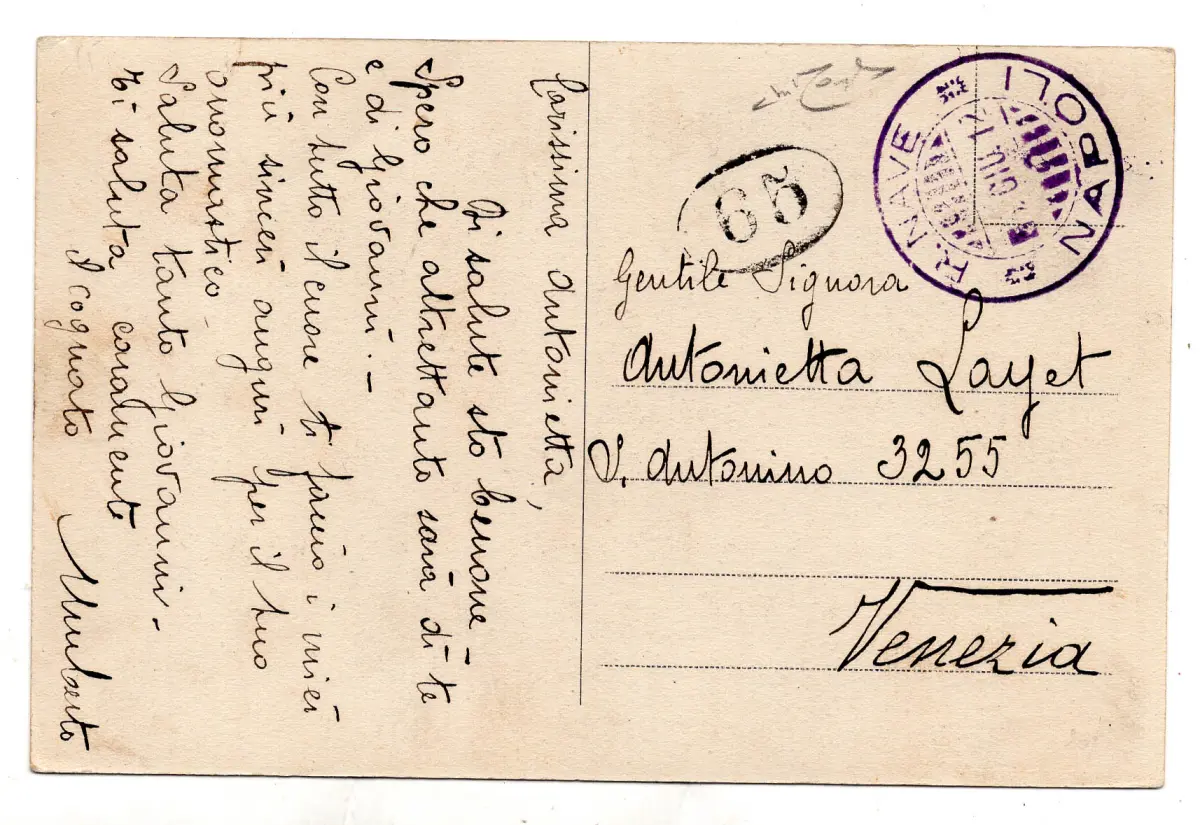 Carissima Antonietta,
Di salute sto benone -
Spero che altrettanto sarà di te
e di Giovanni. -
Con tutto il cuore ti faccio i miei
più sinceri auguri per il tuo
onomastico -
Saluta tanto Giovanni. -
Ti saluta cordialmente
il cognato
Umberto
R. NAVE NAPOLI
GIU
65
Gentile Signora
Antonietta Layet
S. Antonino 3255
Venezia